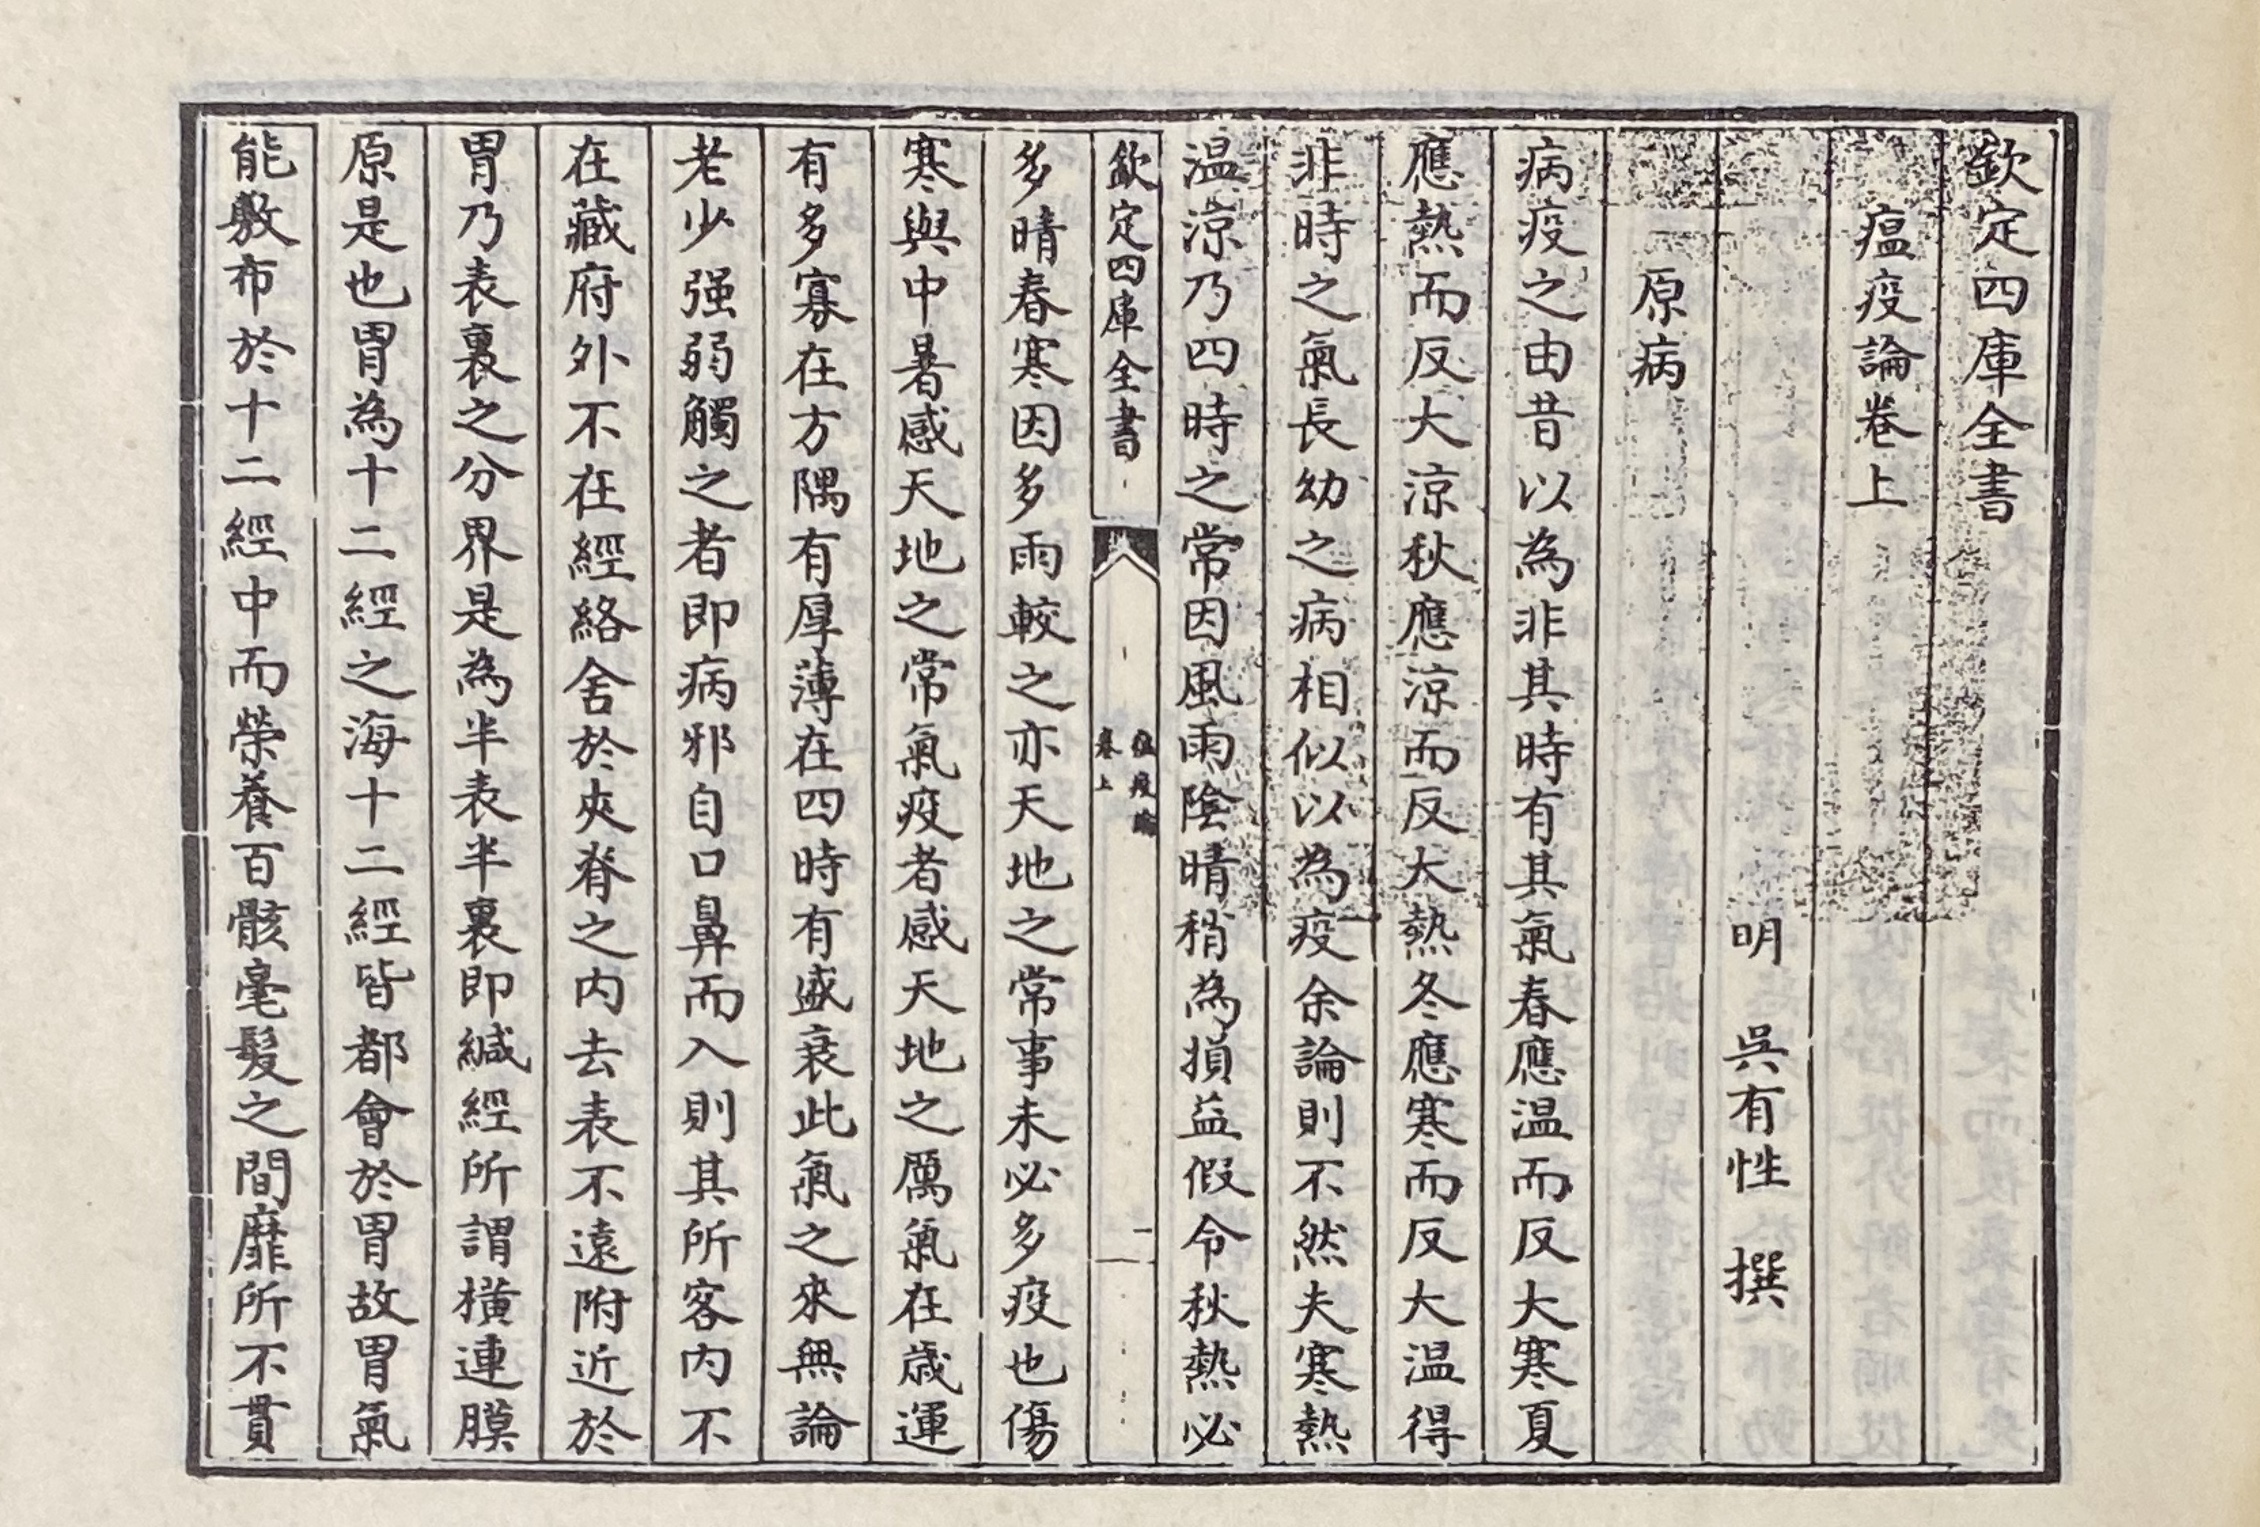 欽定四庫全書
瘟疫論卷上
明 吳有性 撰
原病
病疫之由昔以為非其時有其氣春應温而反大寒夏
應熱而反大涼秋應涼而反大熱冬應寒而反大温得
非時之氣長幼之病相似以為疫余論則不然夫寒熱
温涼乃四時之常因風雨陰晴稍為損益假令秋熱必
欽定四庫全書
瘟疫論
卷上
一
多晴春寒因多雨較之亦天地之常事未必多疫也傷
寒與中暑感天地之常氣疫者感天地之厲氣在歲運
有多寡在方隅有厚薄在四時有盛衰此氣之來無論
老少强弱觸之者即病邪自口鼻而入則其所客内不
在藏府外不在經絡舍於夾脊之内去表不遠附近於
胃乃表裏之分界是為半表半裏即緘經所謂橫連膜
原是也胃為十二經之海十二經皆都會於胃故胃氣
能敷布於十二經中而榮養百骸毫髮之間靡所不貫